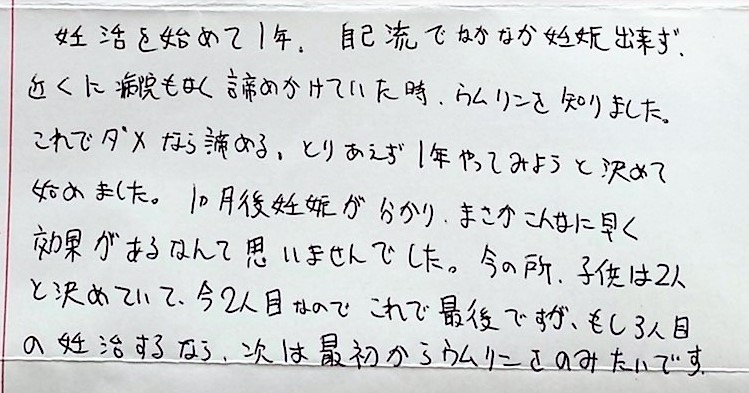 妊活を始めて1年、自己流でなかなか妊娠出来ず、
近くに病院もなく諦めかけていた時、ウムリンを知りました。
これでダメなら諦める、とりあえず1年やってみようと決めて
始めました。10月後妊娠が分かり、まさかこんなに早く
効果があるなんて思いませんでした。今の所、子供は2人
と決めていて、今2人目なのでこれで最後ですが、もし3人目
の妊活するなら、次は最初からウムリンをのみたいです。